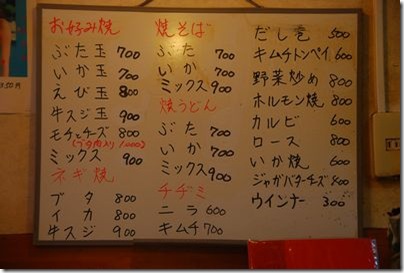 お好み焼
ぶた玉 700
いか玉 700
えび玉 800
牛スジ玉 900
モチとチーズ 800
(ブタ肉入り1000)
ミックス 900
ネギ焼
ブタ 800
イカ 800
牛スジ 900
焼そば
ぶた 700
いか 700
ミックス 900
焼うどん
ぶた 700
いか 700
ミックス 900
チヂミ
ニラ 600
キムチ 700
だし巻 500
キムチトンペイ 600
野菜炒め 800
ホルモン焼 800
カルビ 600
ロース 800
いか焼 600
ジャガバターチーズ 400
ウインナー 300